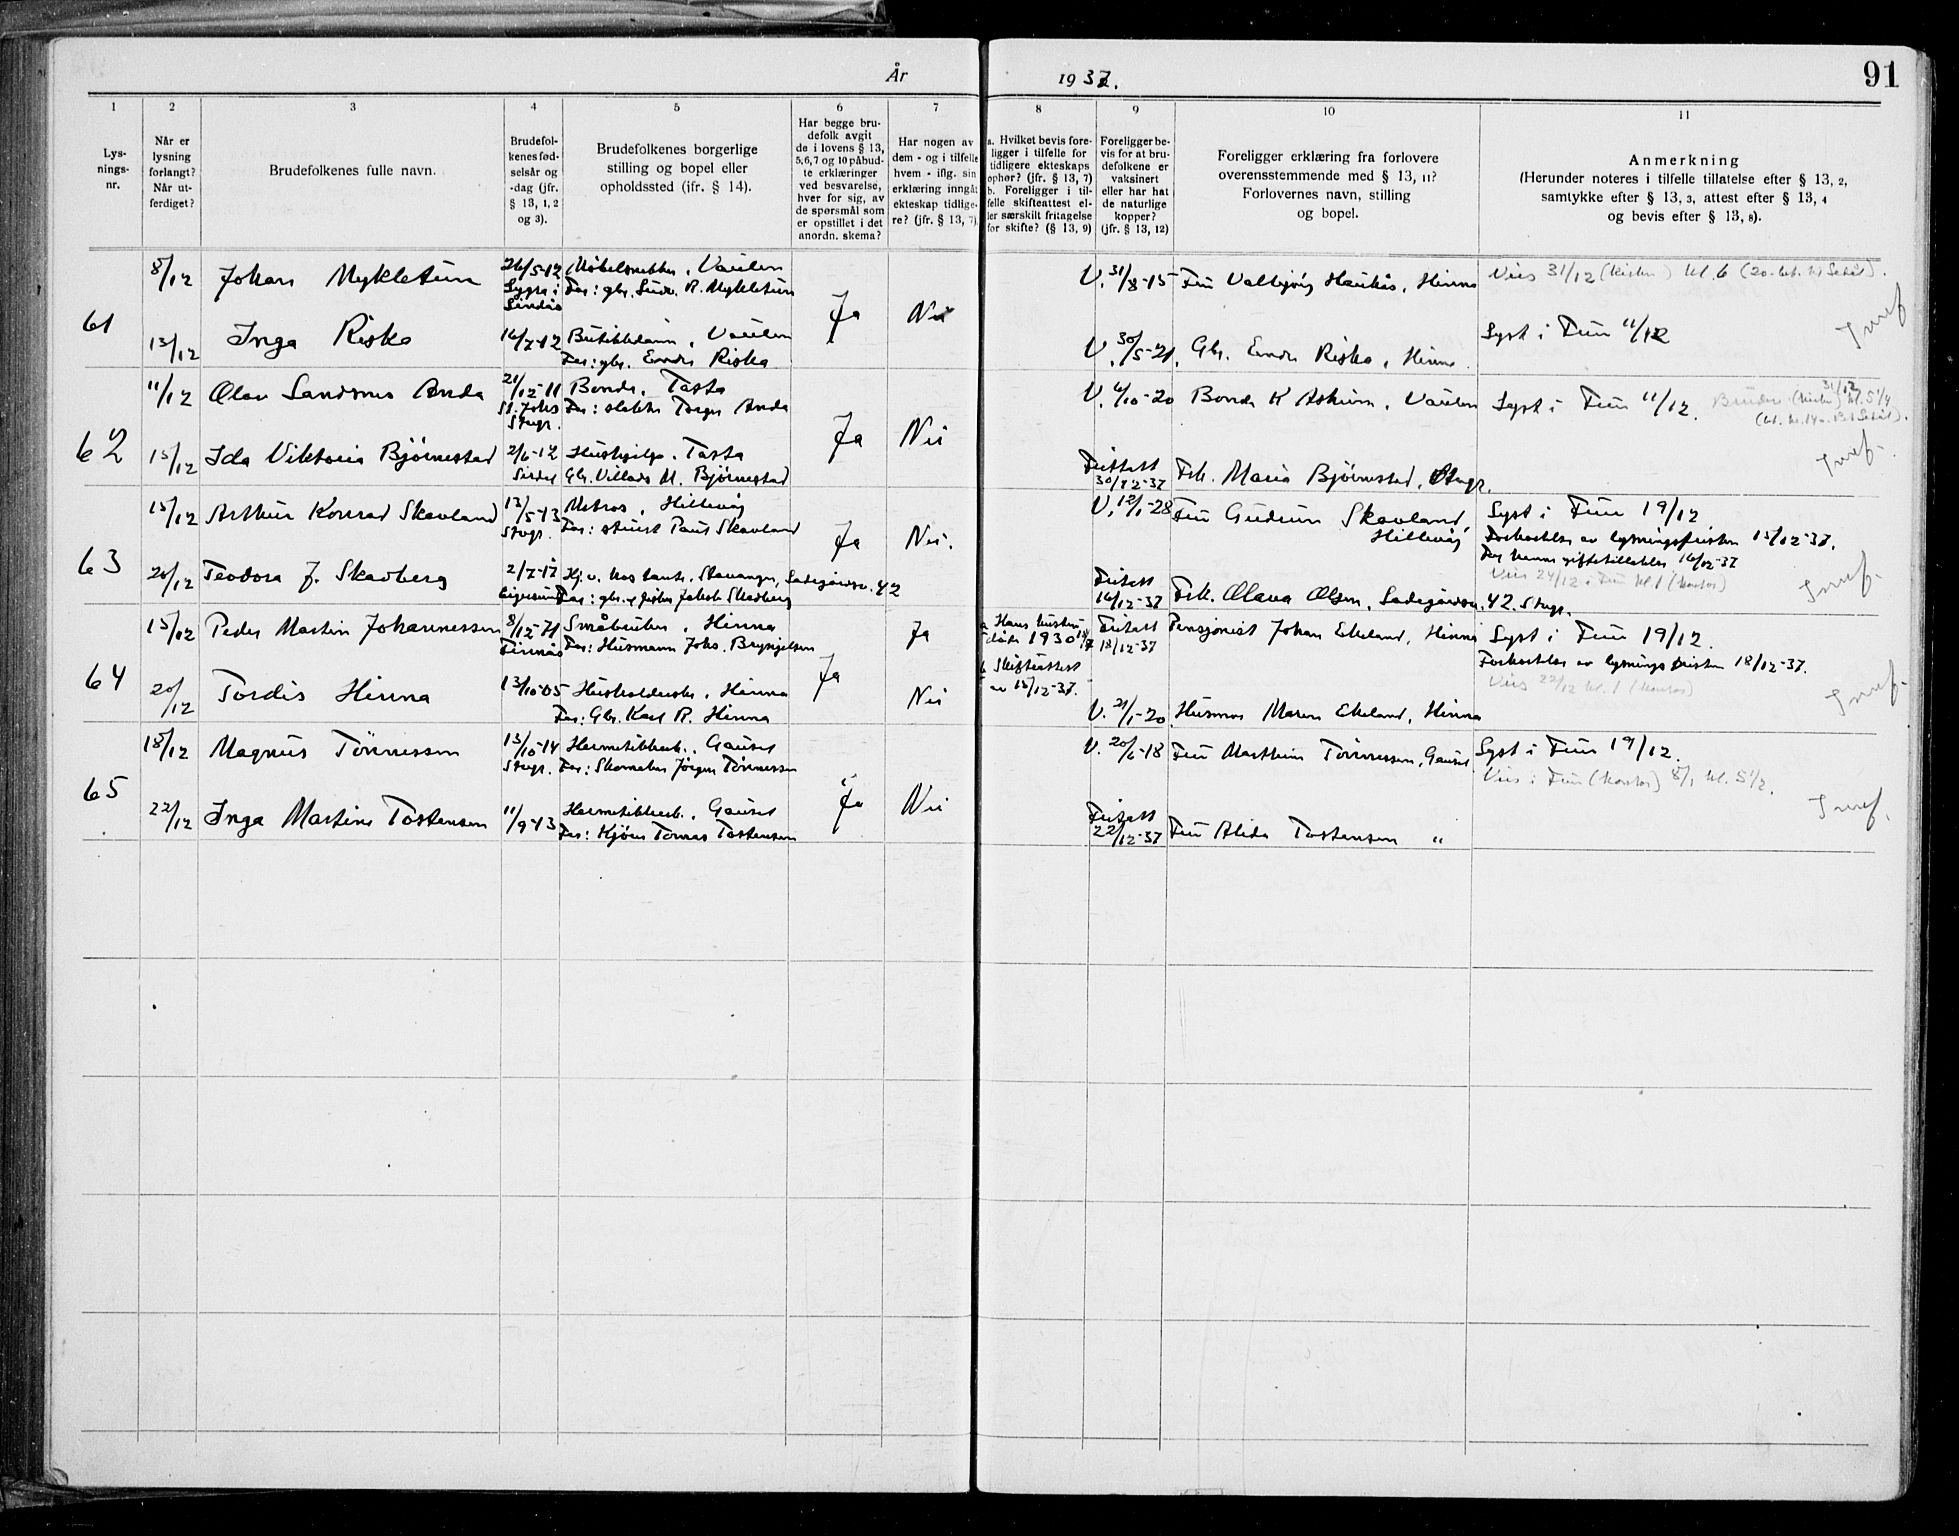 År 1937.
91
1 2 3 4 5 6 7 8 9 10 11
Lys-
nings-
nr.
Når er
lysning
forlangt?
Når ut-
ferdiget?
Brudefolkenes fulle navn.
Brudefol-
kenes fød-
selsår og
-dag (jfr.
§ 13, 1, 2
og 3).
Brudefolkenes borgerlige
stilling og bopel eller
opholdssted (jfr. § 14).
Har begge bru-
defolk avgit
de i lovens § 13,
5,6,7 og 10 påbud-
te erklæringer
ved besvarelse,
hver for sig, av
de spørsmål som
er opstillet i det
anordn. skema?
Har nogen av
dem - og i tilfelle
hvem - iflg. sin
erklæring inngått
ekteskap tidlige-
re? (jfr. § 13, 7).
a. Hvilket bevis fore-
ligger i tilfelle for
tidligere ekteskaps
ophør? (jfr. § 13, 7)
b. Foreligger i til-
felle skifteattest el-
ler særskilt fritagelse
for skifte? (§ 13, 9)
Foreligger be-
vis for at bru-
defolkene er
vaksinert
eller har hat
de naturlige
kopper?
(jfr. § 13, 12)
Foreligger erklæring fra forlovere
overensstemmende med § 13, 11?
Forlovernes navn, stilling
og bopel.
Anmerkning
(Herunder noteres i tilfelle tillatelse efter § 13, 2,
samtykke efter § 13, 3, attest efter § 13, 4
og bevis efter § 13, 8).
61
8/12 Johan Mykletun 26/5-12 Møbelsnekker, Vaulen
Far: gbr. R. Mykletun
Ja Nei
V. 31/8-15 Fru Valborg Haukås, Hinna
Vies 31/12 (kirken) kl. 6
13/12 Inga Riska 16/7-12 Butikkdame, Vaulen
Far: gbr. Endre Riska
V. 30/5-21. Gbr. Endre Riska, Hinna
Lyst i Fruen 11/12
62
11/12 Olav Sandsnes Anda 21/12-11 Bonde, Tasta
St. Johs Stvgr. Far: Torger Anda
Ja Nei
V. 6/10-20 Bonde K Askum, Vaulen
Lyst i Fruen 11/12.
15/12 Ida Viktoria Bjørnestad 2/6-12 Hushjelp, Tasta
Sirdal Gbr. Villads M. Bjørnestad
Fritatt
30/12-37 Frk. Maria Bjørnestad, Stvgr.
63
15/12 Arthur Konrad Skavland 13/5-13 Matros, Hillevåg
Stvgr. Far: Skavland
Ja Nei.
V. 12/1-28 Fru Gudrun Skavland,
Hillevåg
Lyst i Fruen 19/12
Forkortelse av lysningsfristen 15/12-37.
giftetillatelse 16/12-37
Vies 24/12 i Fruen kl. 1 (kontor)
20/12 Teodora J. Skadberg 2/7-17 Hj. v. hos tante, Stavanger, Ladegårdsv. 42
Eigersund Far: gbr. Jakob Skadberg
Fritatt
16/12-37 Frk. Olava Olsen, Ladegårdsv. 42. Stvgr.
64
15/12 Peder Martin Johannessen 8/12-71 Småbruker, Hinna
Far: Husmann Johs. Brynjelsen
Ja
a Hans hustru
døde 1930
Fritatt
18/12-37
Pensjonist Johan Ekeland, Hinna
Lyst i Fruen 19/12.
Forkortelse av lysningsfristen 18/12-37.
Vies 22/12 kl. 1 (kontor)
Ja
b Skifteattest
av 15/12-37.
20/12 Tordis Hinna 13/10-05 Husholderske, Hinna
Far: Gbr. Karl R. Hinna
Nei
V. 21/1-20. Husmor Maren Ekeland, Hinna
65
18/12 Magnus Tönnessen 13/10-14 Hermetikkarb., Gausel
Stvgr. Far: Skomaker Jörgen Tönnessen
Ja Nei
V. 20/6-18 Fru Marthine Tönnessen, Gausel
Lyst i Fruen 19/12.
Vies i Fruen (kontor) 8/1 kl. 5 1/2.
22/12 Inga Martine Tostensen 11/9-13 Hermetikkarb., Gausel
Far: Tomas Tostensen
Fritatt
22/12-37 Fru Alida Tostensen "